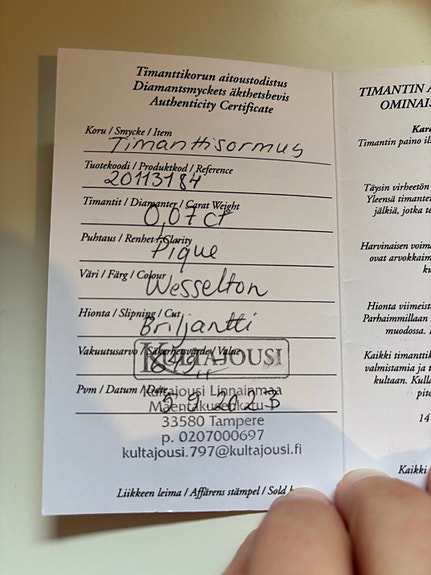 Timanttikorun aitoustodistus
Diamantsmyckets äkthetsbevis
Authenticity Certificate
Koru / Smycke / Item
Timanttisormus
Tuotekoodi / Produktkod / Reference
20113184
Timantit / Diamanter / Carat Weight
0,07 ct
Puhtaus / Renhet / Clarity
Pique
Väri / Färg / Colour
Wesselton
Hionta / Slipning / Cut
Briljantti
Vakuutusarvo / Säkerhetsvärde / Value
KULTAJOUSI
Pvm / Datum / Date
Kultajousi Linnainmaa
Mäentakusenkatu
33580 Tampere
p. 0207000697
kultajousi.797@kultajousi.fi
Liikkeen leima / Affärens stämpel / Sold
TIMANTIN
OMINAIS
Kara
Timantin paino il
Täysin virheetön
Yleensä timante
jälkiä, jotka te
Harvinaisen voima
ovat arvokkaim
ku
Hionta viimeist
Parhaimmillaan
muodossa.
Kaikki timanttik
valmistamia ja t
kultaan. Kulla
pito
14
Kaikki